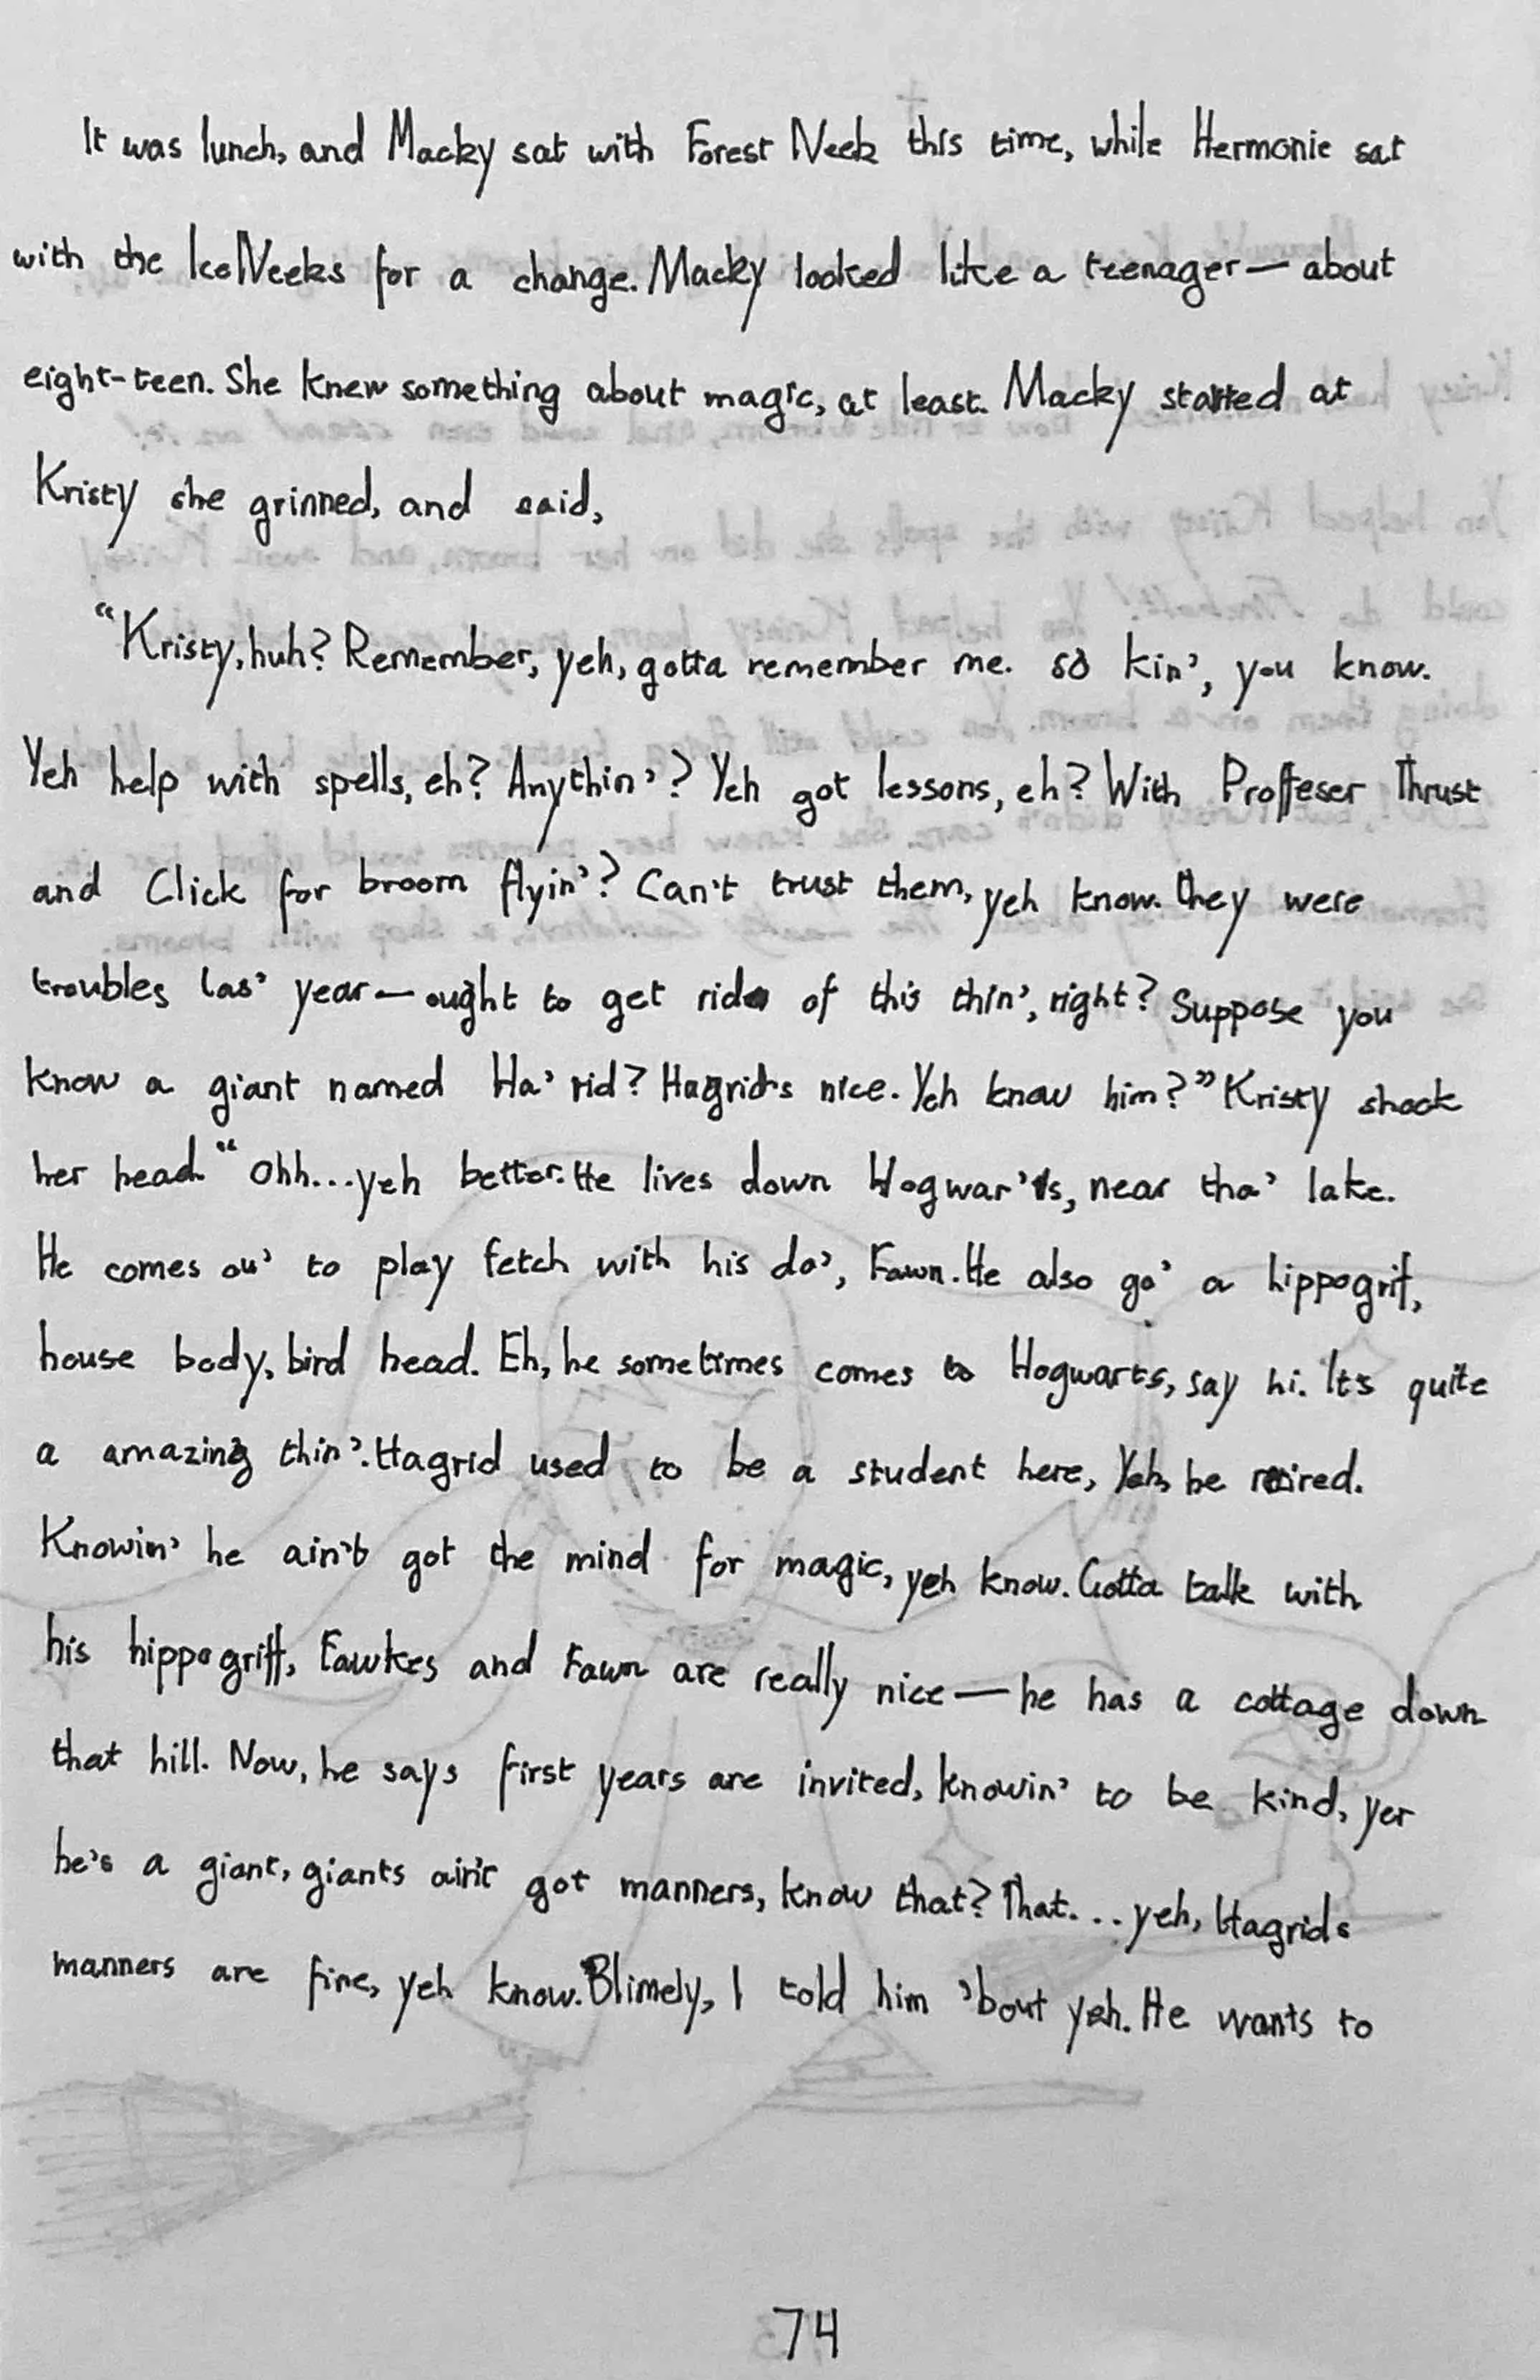 It was lunch, and Macky sat with Forest Neek this time, while Hermonie sat
with the IceNeeks for a change. Macky looked like a teenager — about
eight-teen. She knew something about magic, at least. Macky started at
Kristy she grinned, and said,
"Kristy, huh? Remember, yeh, gotta remember me. so kin', you know.
Yeh help with spells, eh? Anythin'? Yeh got lessons, eh? With Proffeser Thrust
and Click for broom flyin'? Can't trust them, yeh know. they were
troubles las' year — ought to get rid of this thin', right? Suppose you
know a giant named Ha'rid? Hagrid's nice. Yeh know him?" Kristy shook
her head. "Ohh...yeh better. He lives down Hogwar's, near tha' lake.
He comes ou' to play fetch with his do', Fawn. He also go' a hippogrif,
house body, bird head. Eh, he sometimes comes to Hogwarts, say hi. It's quite
a amazing thin'. Hagrid used to be a student here, Yeh, be retired.
Knowin' he ain't got the mind for magic, yeh know. Gotta talk with
his hippogriff, Fawkes and Fawn are really nice — he has a cottage down
that hill. Now, he says first years are invited, knowin' to be kind, yer
he's a giant, giants ain't got manners, know that? That... yeh, Hagrids
manners are fine, yeh know. Blimely, I told him 'bout yeh. He wants to
74